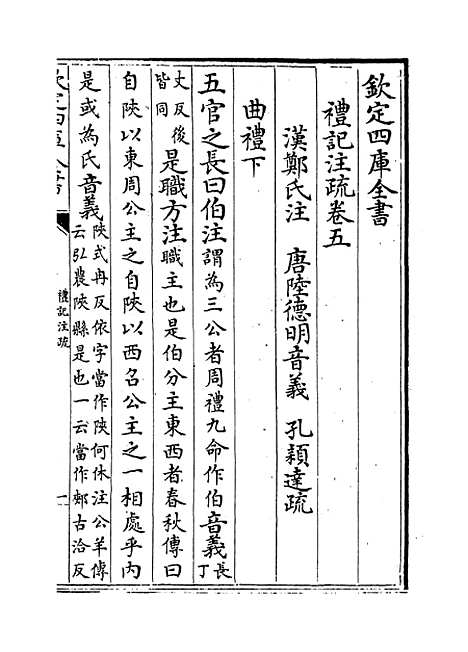 欽定四庫全書
禮記注疏卷五
漢鄭氏注 唐陸德明音義 孔穎達疏
曲禮下
五官之長曰伯注謂為三公者周禮九命作伯音義長丁
丈反後皆同是職方注職主也是伯分主東西者春秋傳曰
自陜以東周公主之自陜以西召公主之一相處乎內
是或為氏音義陜式冉反依字當作陜何休注公羊傳云弘農陜縣是也一云當作郟古洽反
禮記注疏
一